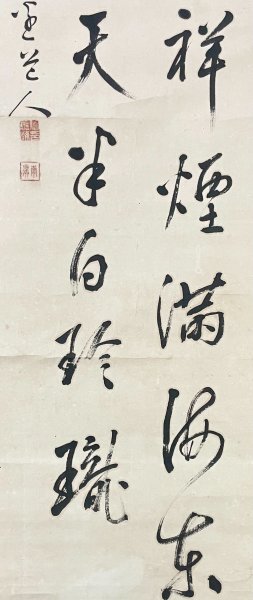 祥煙滿海東
天半白玲瓏
道人